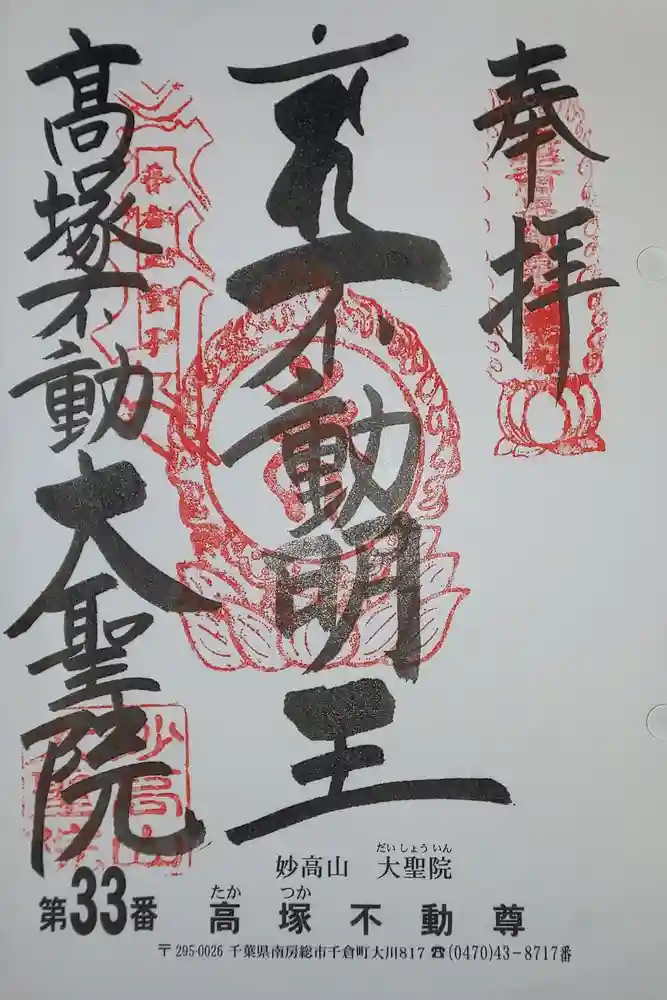 奉拝
不動明王
高塚不動
大聖院
妙高山　大聖院
だいしょういん
第33番　高塚不動尊
たか　つか
〒295-0026 千葉県南房総市千倉町大川817 ☎(0470)43-8717番